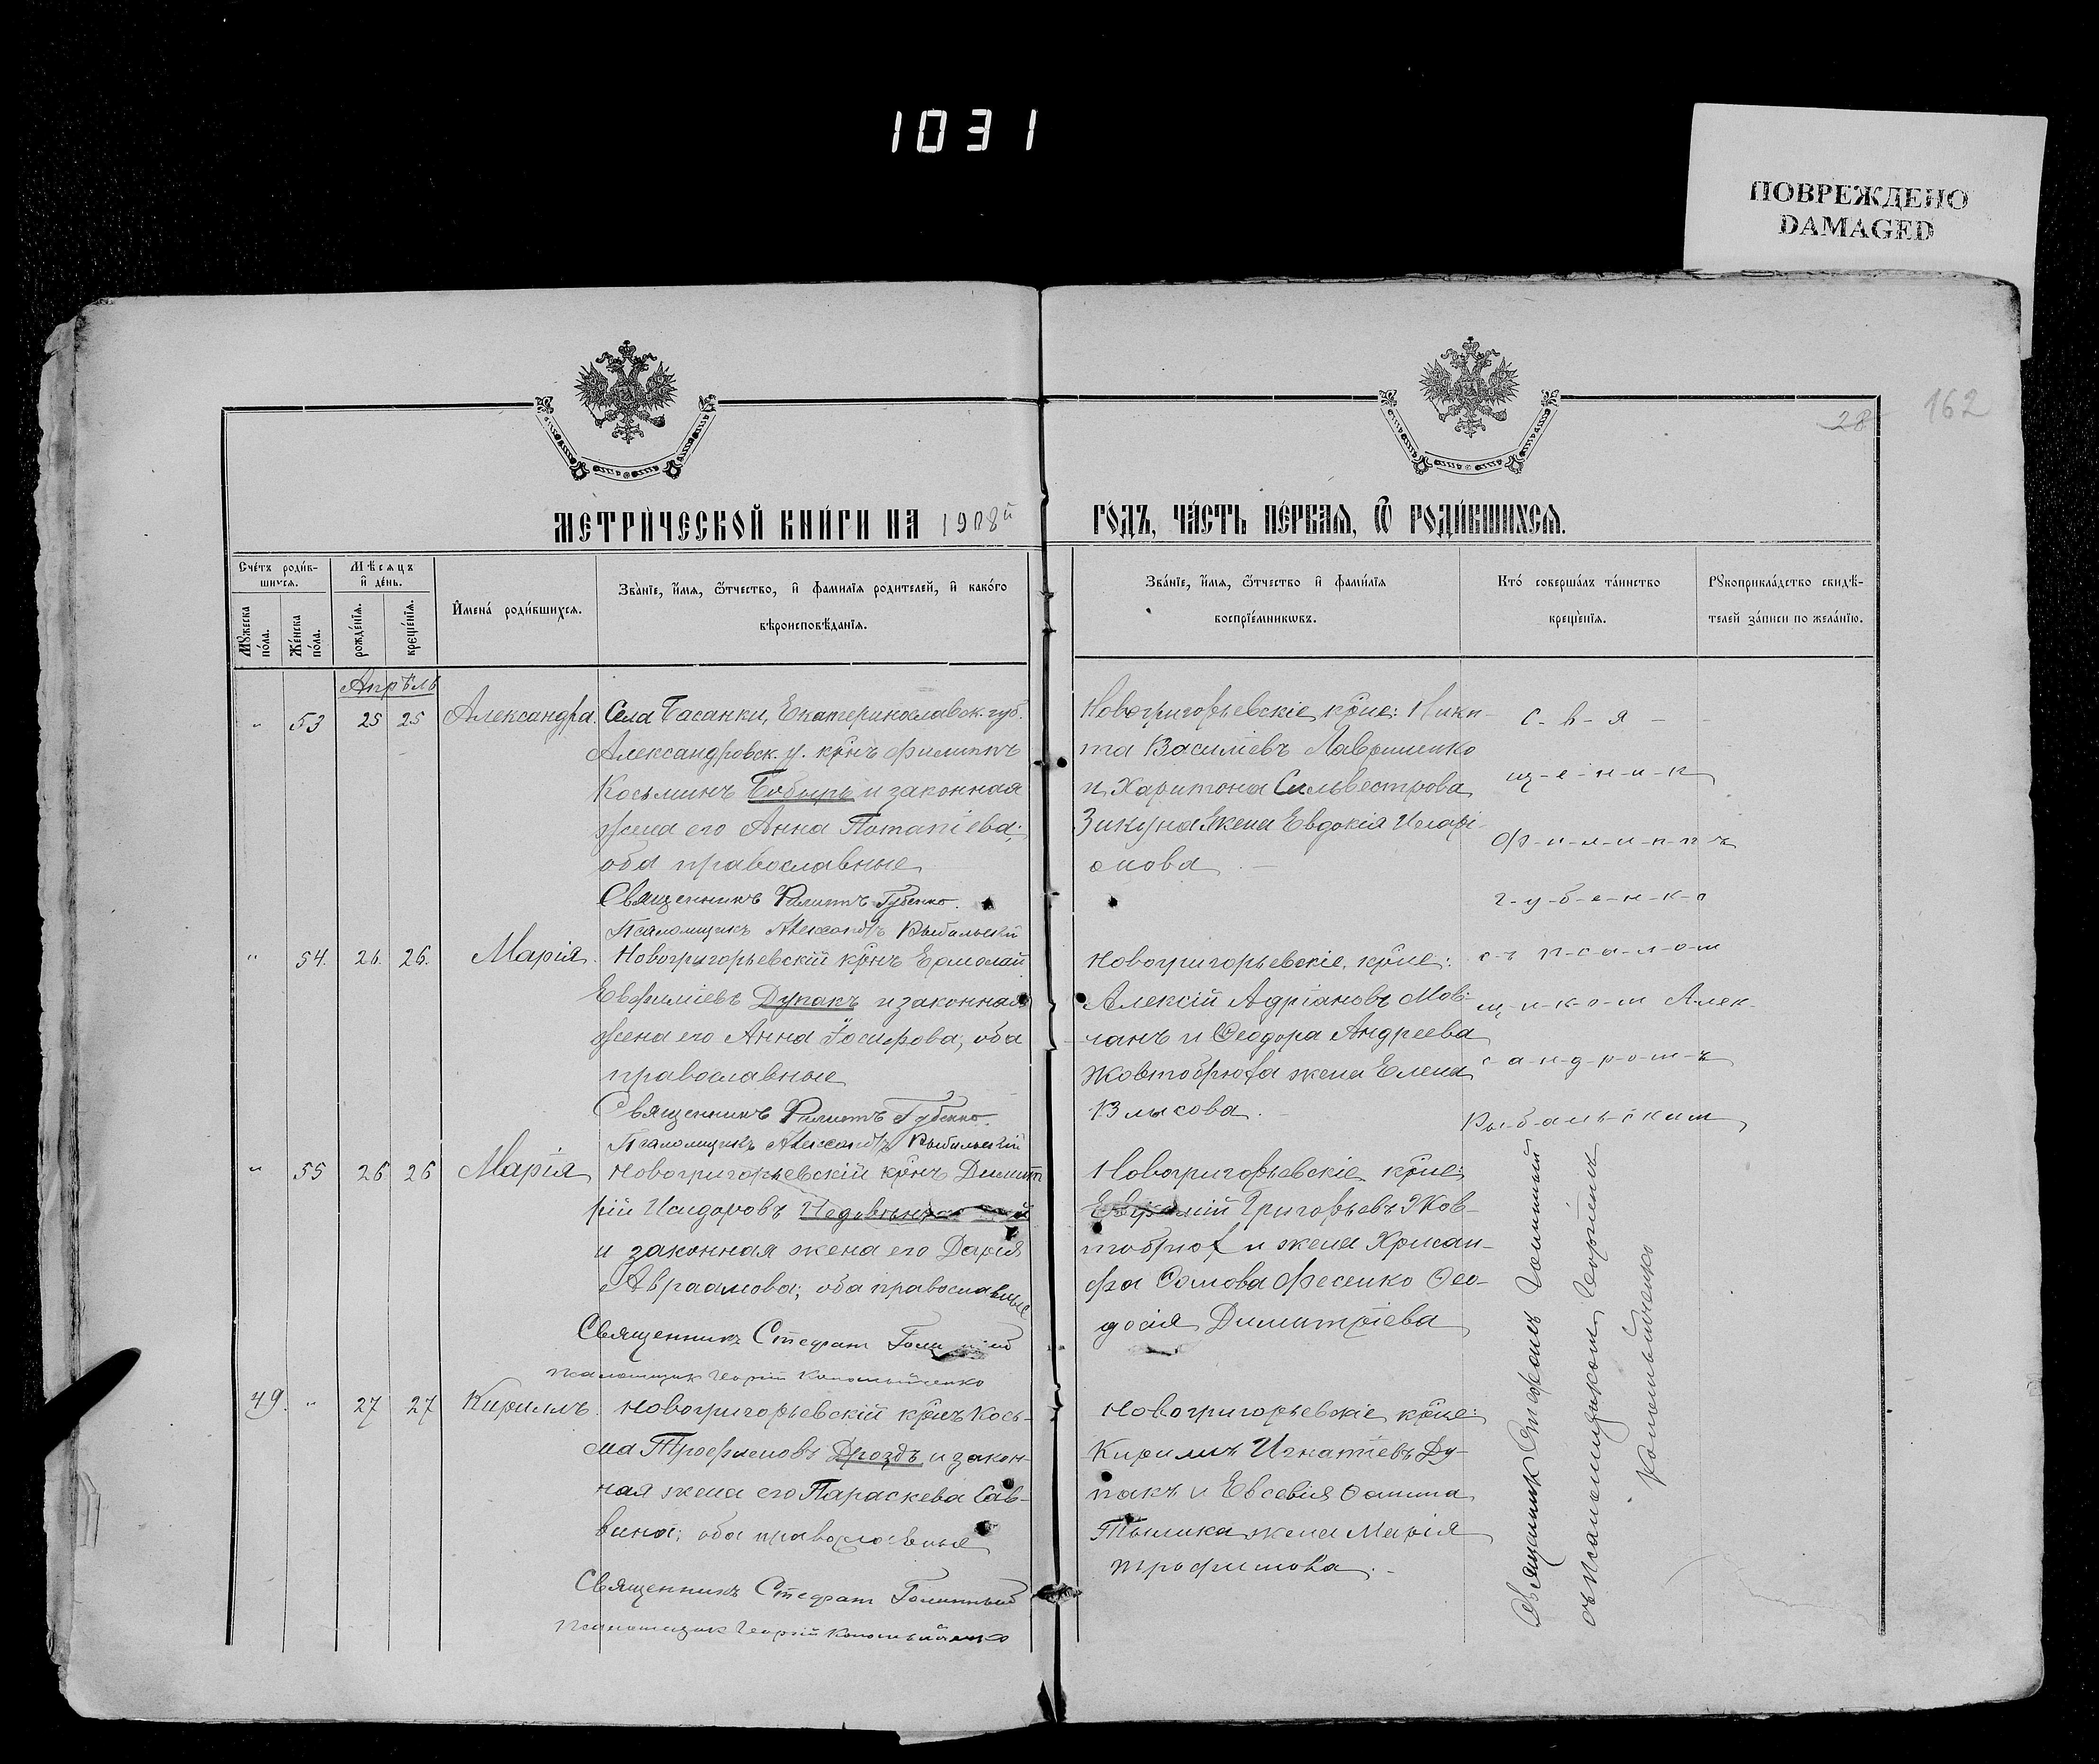 1031
ПОВРЕЖДЕНО
DAMAGED
162
28
МЕТРИ́ЧЕСКОЙ КНИ́ГИ НА 1908й
ГО́ДЪ, ЧА́СТЬ ПЕ́РВАѦ, Ѿ РОДИ́ВШИХСѦ.
Сче́тъ роди́в-
шихсѧ.
Мꙋ́жеска по́ла.
Же́нска по́ла.
Мѣ́сѧцъ
и҆ де́нь.
рожде́нїѧ.
креще́нїѧ.
И҆мена̀ роди́вшихсѧ.
Зва́нїе, и҆́мѧ, ѻ҆́тчество, и҆ фами́лїѧ роди́телей, и҆ како́го
вѣроисповѣ́данїѧ.
Зва́нїе, и҆́мѧ, ѻ҆́тчество и҆ фами́лїѧ
воспрїе́мникѡвъ.
Кто̀ соверша́лъ та́инство
креще́нїѧ.
Рꙋкоприкла́дство свидѣ́-
телей за́писи по жела́нїю.
Апрѣль
" 53 25 25 Александра. Села Басанки, Екатеринославск. губ.
Александровск. у. крнъ Филиппъ
Косьминъ Бобырь и законная
жена его Анна Потапіева;
оба православные
Священникъ Филиппъ Губенко.
Псаломщикъ Александръ Рыбальскій
Новогригорьевскіе крне: Ники-
та Василіевъ Лавриненко
и Харитона Сильвестрова
Зикуна жена Евдокія Иларі-
онова
С-в-я-
щ-е-н-и-к
Ф-и-л-и-п-п-ъ
Г-у-б-е-н-к-о
с-ъ п-с-а-л-о-м
щ-и-к-о-м Алек-
с-а-н-д-р-о-м-ъ
Ры-б-а-ль-с-ким
" 54. 26. 26. Марія. Новогригорьевскій крнъ Ермолай
Евфиміевъ Дупакъ и законная
жена его Анна Іосифова, оба
православные
Священникъ Филиппъ Губенко.
Псаломщикъ Александръ Рыбальскій
Новогригорьевскіе, крне:
Алексій Адріановъ Мов-
чанъ и Ѳеодора Андреева
Жовтобрюха жена Елена
Власова.
" 55 26 26 Марія Новогригорьевскій крнъ Димит
рій Исидоровъ
и законная жена его Дарія
Авраамова; оба православные
Священникъ Стефан Голи
псаломщик Георгій Коломыйченко
Новогригорьевскіе крне:
Евфимій Григорьевъ Жов-
тобрюх и жена Хрисан-
фа Сомова Фесенко Ѳео-
досія Димитріева
49. " 27 27 Кириллъ. Новогригорьевскій крнъ Кось-
ма Трофимовъ Дроздъ и закон-
ная жена его Параскева Сав-
вина; оба православныя
Священникъ Стефан Голинный
Псаломщик Георгій Коломыйченко
Новогригорьевскіе крне:
Кириллъ Игнатіевъ Ду-
пакъ и Евсевія Ѳомина
жена Марія
Трофимова.
Священник Стефанъ Голинный
съ псаломщиком Георгіемъ
Коломыйченко